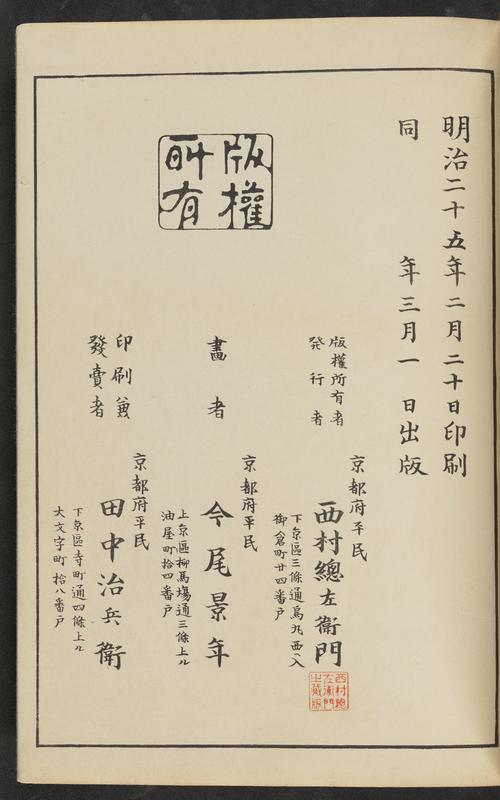 明治二十五年二月二十日印刷
同　年三月一日出版
版權所有
版權所有者
発行者
京都府平民
西村總左衛門
下京區三條通烏丸西へ入
御倉町廿四番戸
西村總
左衛門
之蔵版
畫者
京都府平民
今尾景年
上京區柳馬塲通三條上ル
油屋町拾四番戸
印刷兼
發賣者
京都府平民
田中治兵衛
下京區寺町通四條上ル
大文字町拾八番戸